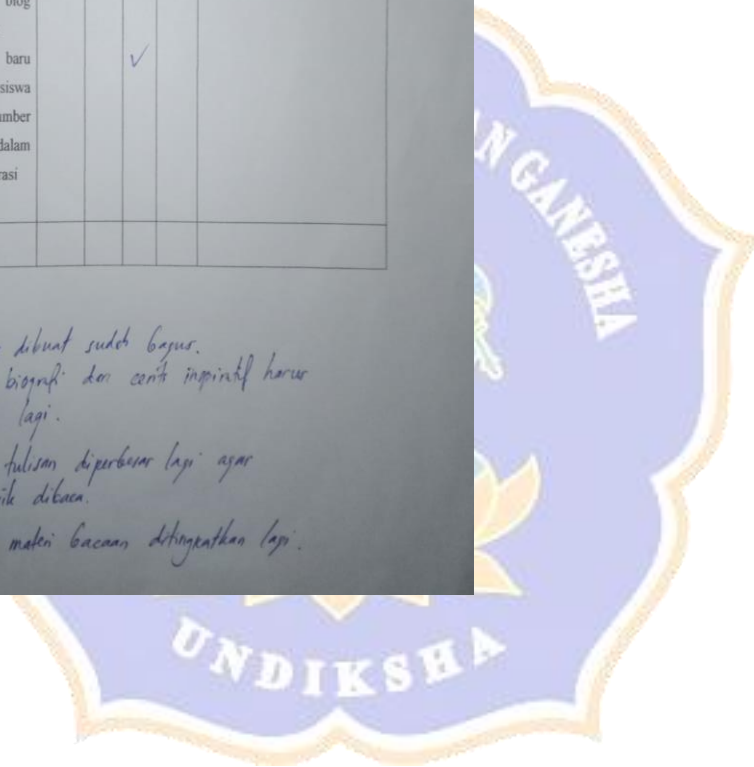 blog
baru
siswa
umber
dalam
rasi
dibuat sudah bagus.
biografi dan cerita inspiratif harus
lagi.
tulisan diperbesar lagi agar
ik dibaca.
materi bacaan ditingkatkan lagi.
N GANESHA
UNDIKSHA